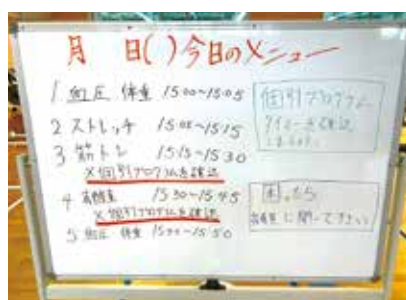 月 日( )今日のメニュー
1 血圧 体重 15:00~15:05
2 ストレッチ 15:05~15:15
3 筋トレ 15:15~15:30
×個別プログラムを確認
4 15:30~15:45
×個別プログラムを確認
5 血圧 体重 15:50
個別プログラム
を確認
困ったら
に聞いて下さい